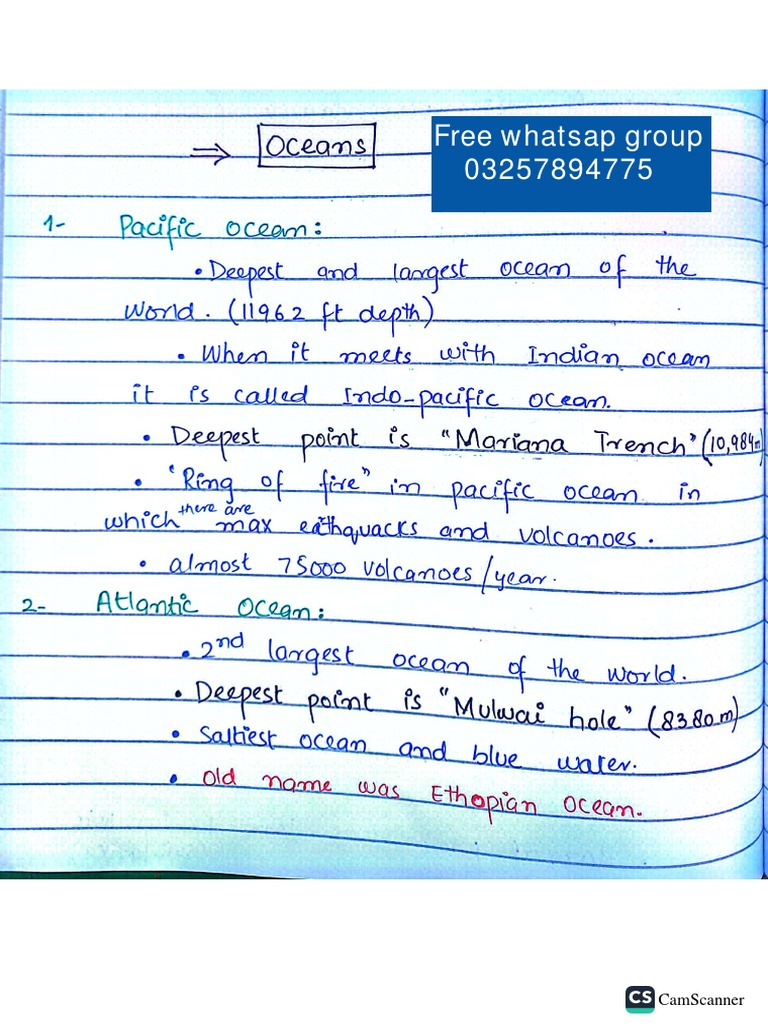 ⇒ Oceans
Free whatsap group
03257894775
1- Pacific ocean:
• Deepest and largest ocean of the
world. (11962 ft depth)
• When it meets with Indian ocean
it is called Indo-pacific ocean.
• Deepest point is "Mariana Trench" (10,984m)
• 'Ring of fire" in pacific ocean in
which there are max eathquacks and volcanoes.
• almost 75000 volcanoes/year.
2- Atlantic Ocean:
• 2nd largest ocean of the world.
• Deepest point is "Mulwai hole" (8380m)
• Saltiest ocean and blue water.
• old name was Ethopian Ocean.
CS CamScanner